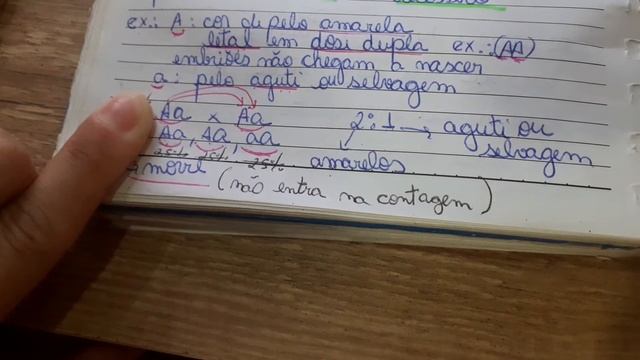 ex.: A : cor de pelo amarela
letal em dose dupla ex.: (AA)
embriões não chegam a nascer
a : pelo aguti ou selvagem
Aa x Aa 2:1 → aguti ou
Aa, Aa, aa selvagem
25% 25% 25% amarelos
morre (não entra na contagem)